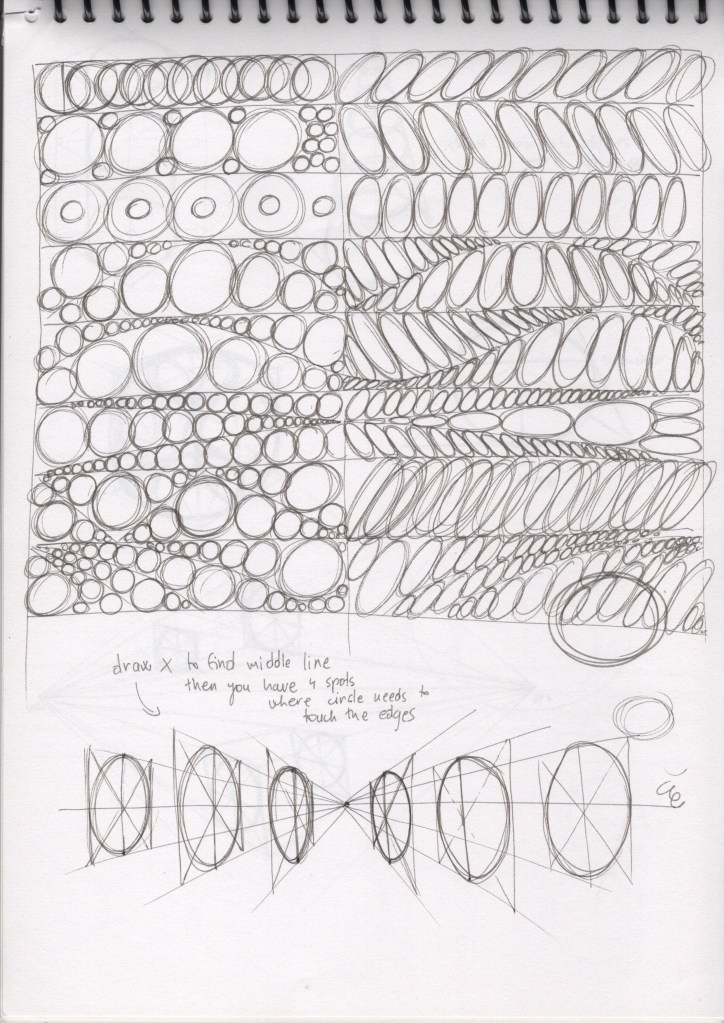 draw X to find middle line
then you have 4 spots
where circle needs to
touch the edges